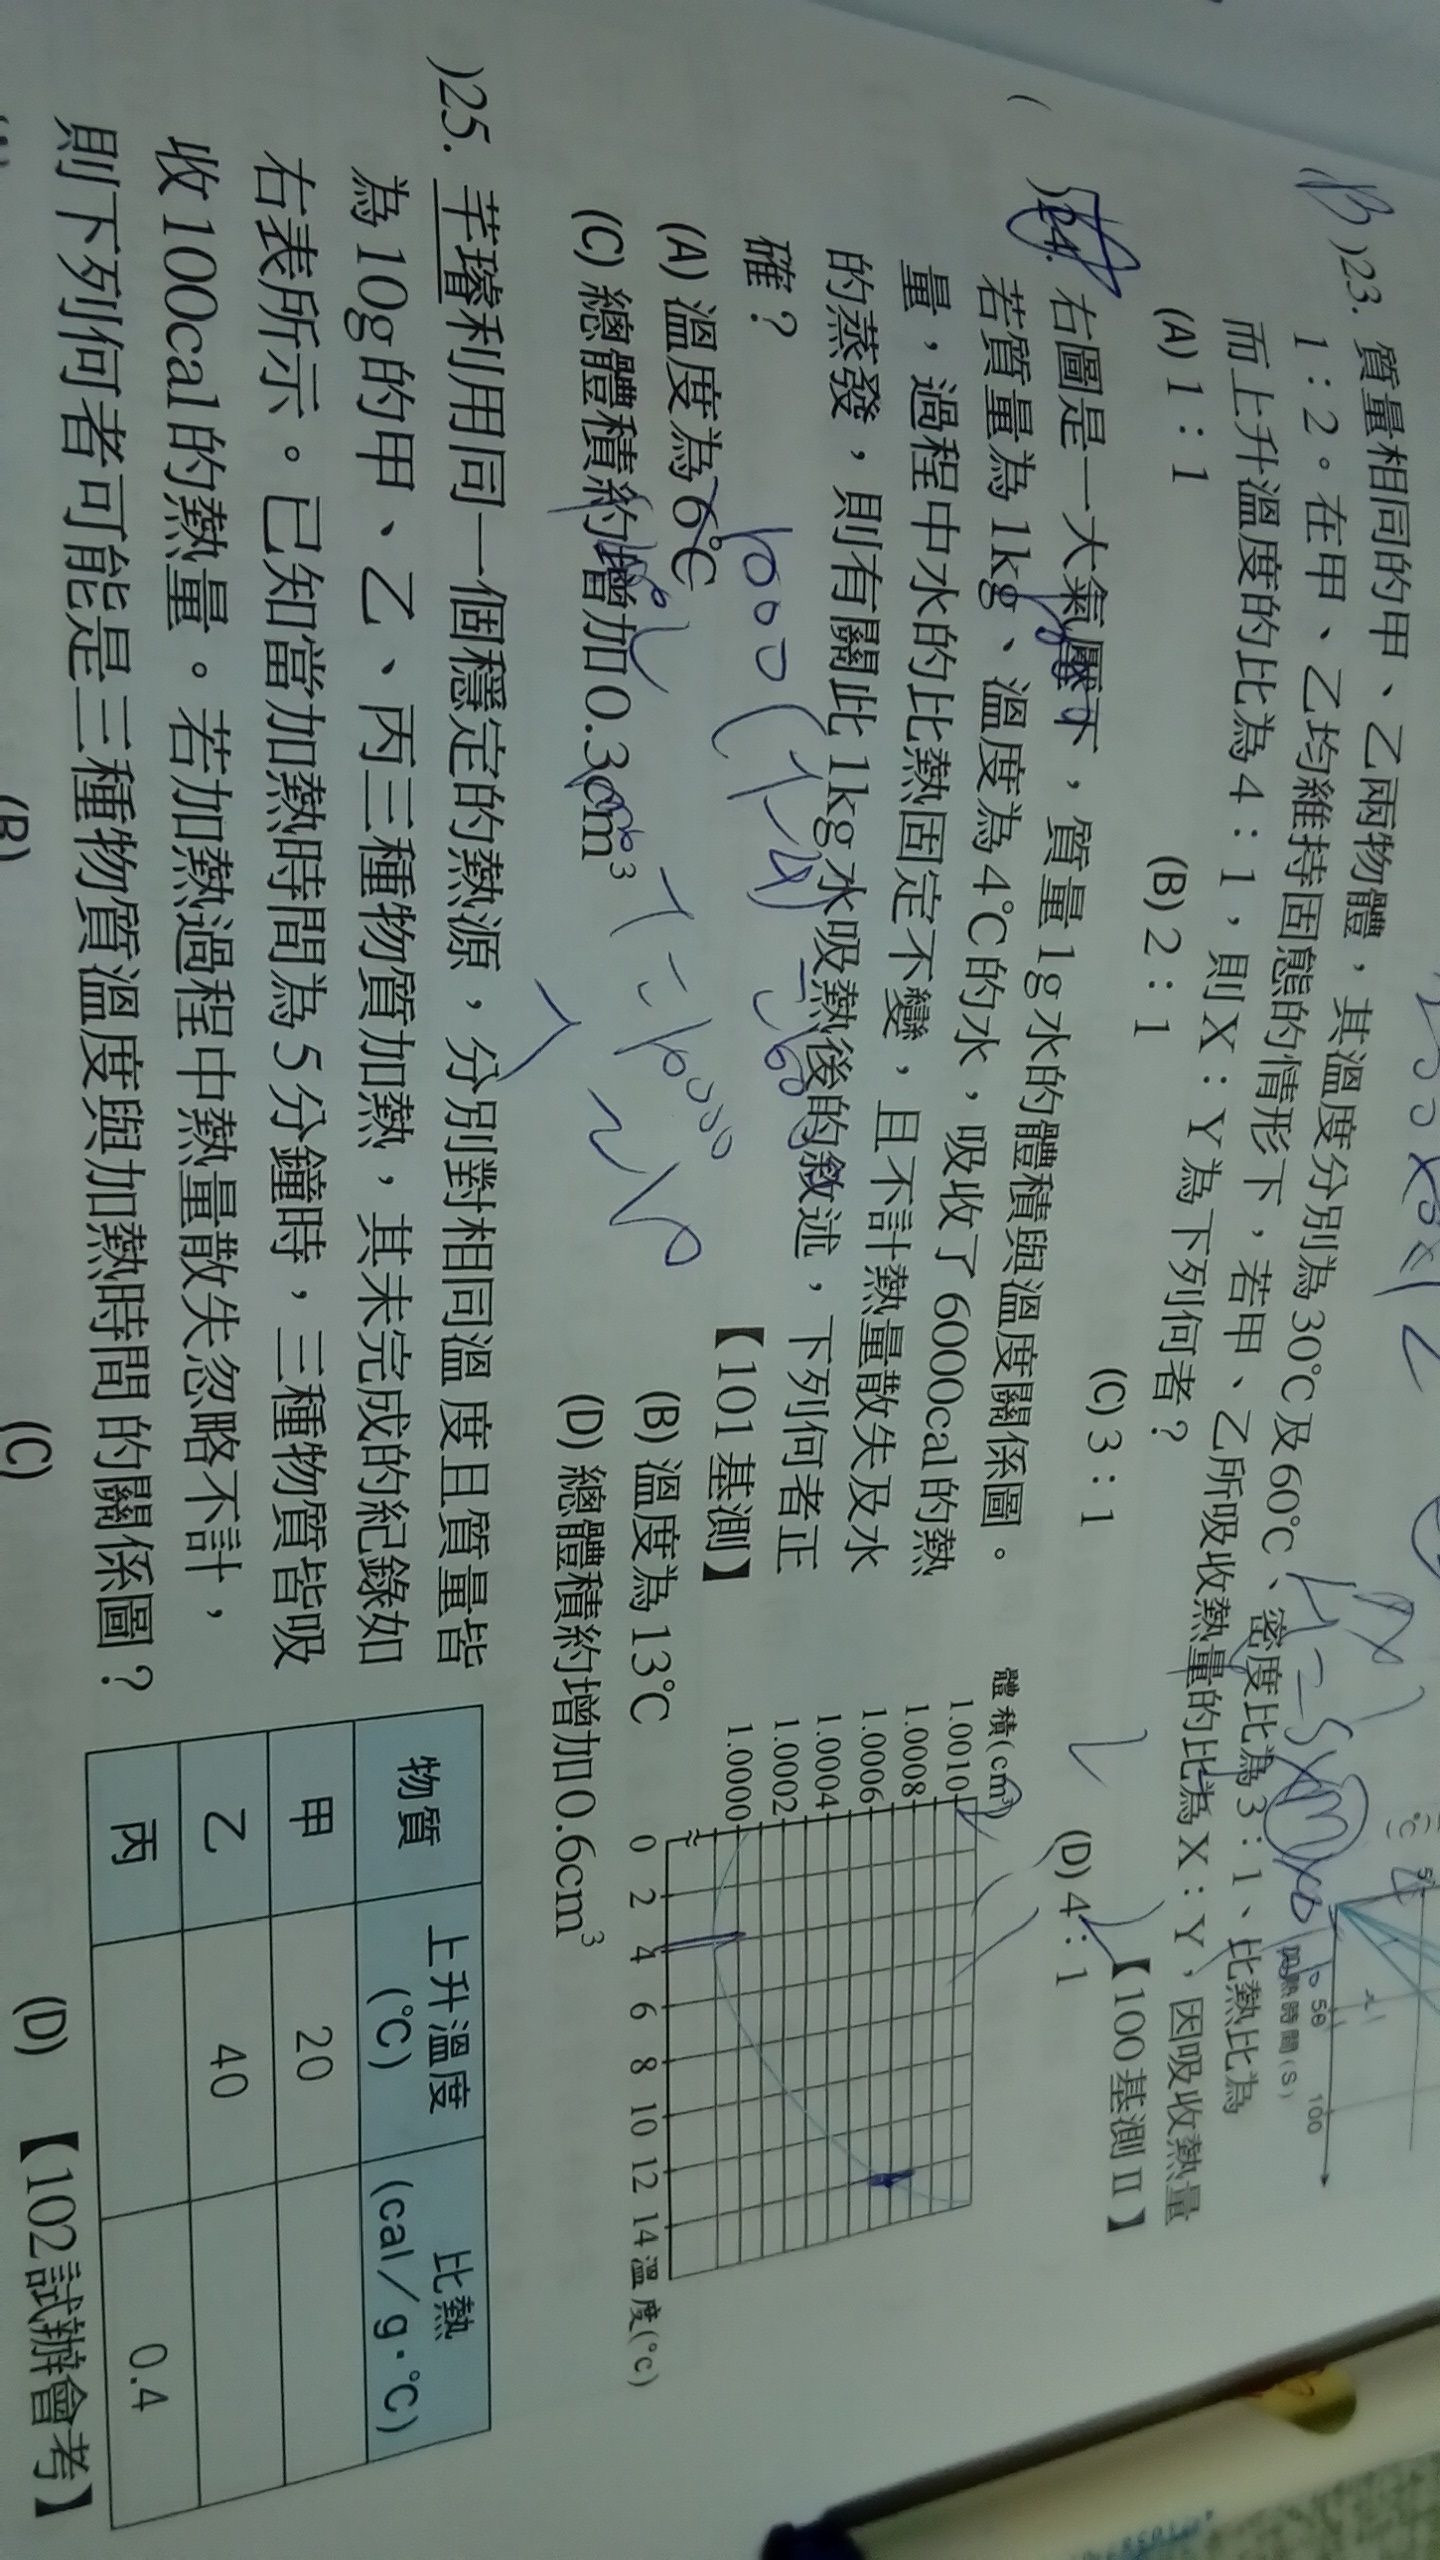 (B)23. 質量相同的甲、乙兩物體，其溫度分別為30℃及60℃、密度比為3：1、比熱比為
1：2。在甲、乙均維持固態的情形下，若甲、乙所吸收熱量的比為X：Y，因吸收熱量
而上升溫度的比為4：1，則X：Y為下列何者？
【100基測Ⅱ】
(A) 1：1
(B) 2：1
(C) 3：1
(D) 4：1
加熱時間(S)
50
100
( )24. 右圖是一大氣壓下，質量1g水的體積與溫度關係圖。
若質量為1kg、溫度為4℃的水，吸收了6000cal的熱
量，過程中水的比熱固定不變，且不計熱量散失及水
的蒸發，則有關此1kg水吸熱後的敘述，下列何者正
確？
【101基測】
(A) 溫度為6℃
(B) 溫度為13℃
(C) 總體積約增加0.3cm³
(D) 總體積約增加0.6cm³
體積(cm³)
1.0010
1.0008
1.0006
1.0004
1.0002
1.0000
0 2 4 6 8 10 12 14 溫度(℃)
)25. 芊璿利用同一個穩定的熱源，分別對相同溫度且質量皆
為10g的甲、乙、丙三種物質加熱，其未完成的紀錄如
右表所示。已知當加熱時間為5分鐘時，三種物質皆吸
收100cal的熱量。若加熱過程中熱量散失忽略不計，
則下列何者可能是三種物質溫度與加熱時間的關係圖？
【102試辦會考】
物質 上升溫度(℃) 比熱(cal／g·℃)
甲 20
乙 40
丙 0.4
(B)
(C)
(D)